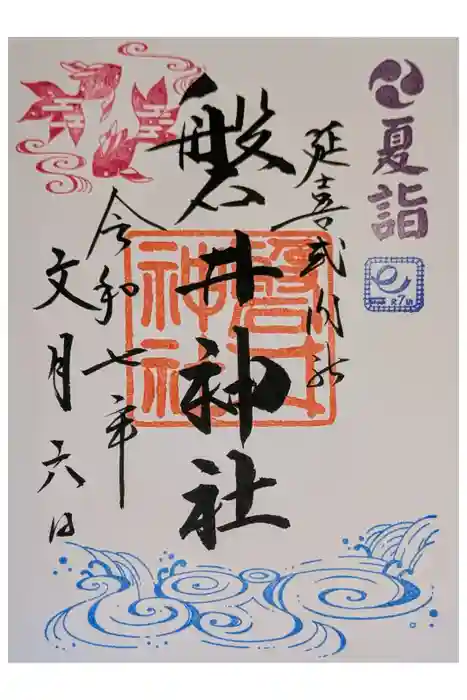 夏詣
R7
延喜式内社
磐井神社
磐井
神社
令和七年
文月六日